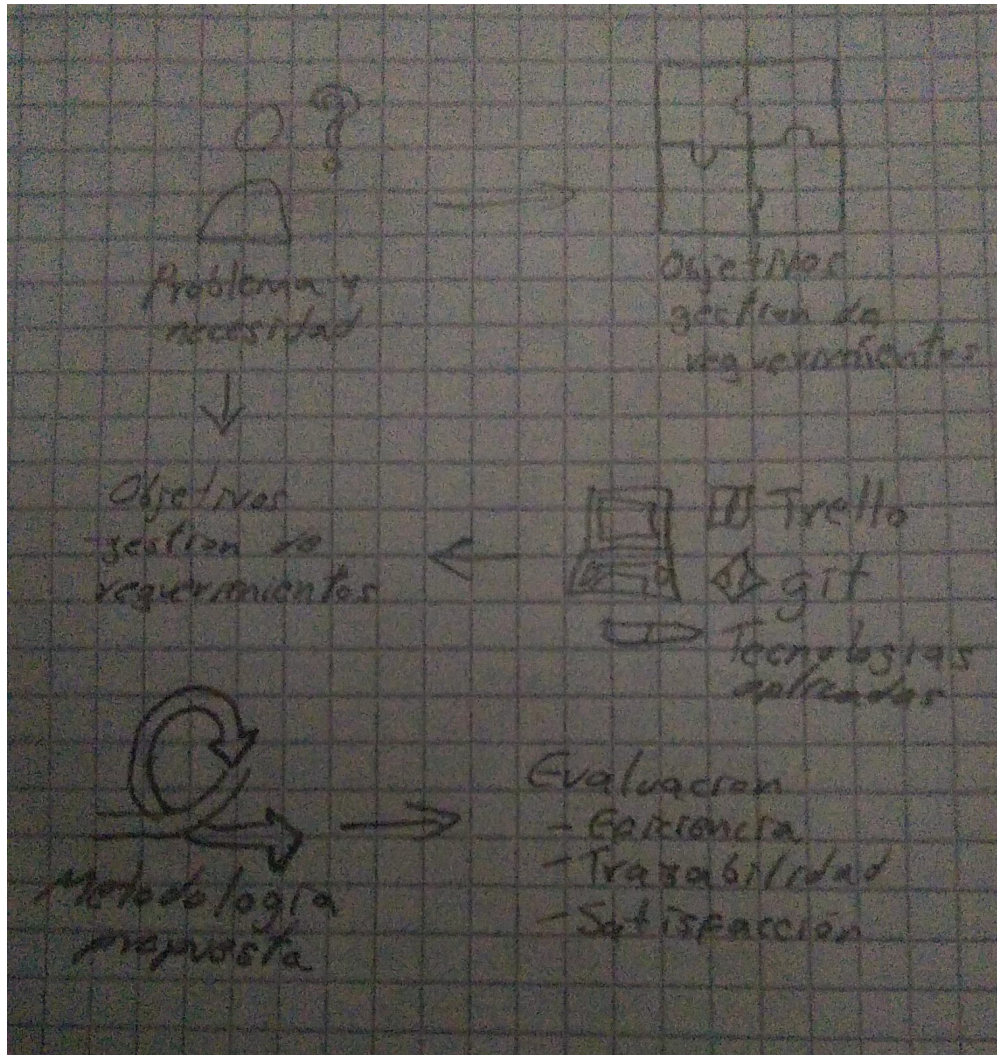 Problema y
necesidad
Objetivos
gestion de
requerimientos
Objetivos
gestion de
requermientos
Trello
git
Tecnologias
aplicadas
Metodologia
propuesta
Evaluacion
- Eficiencia
- Trazabilidad
- Satisfacción